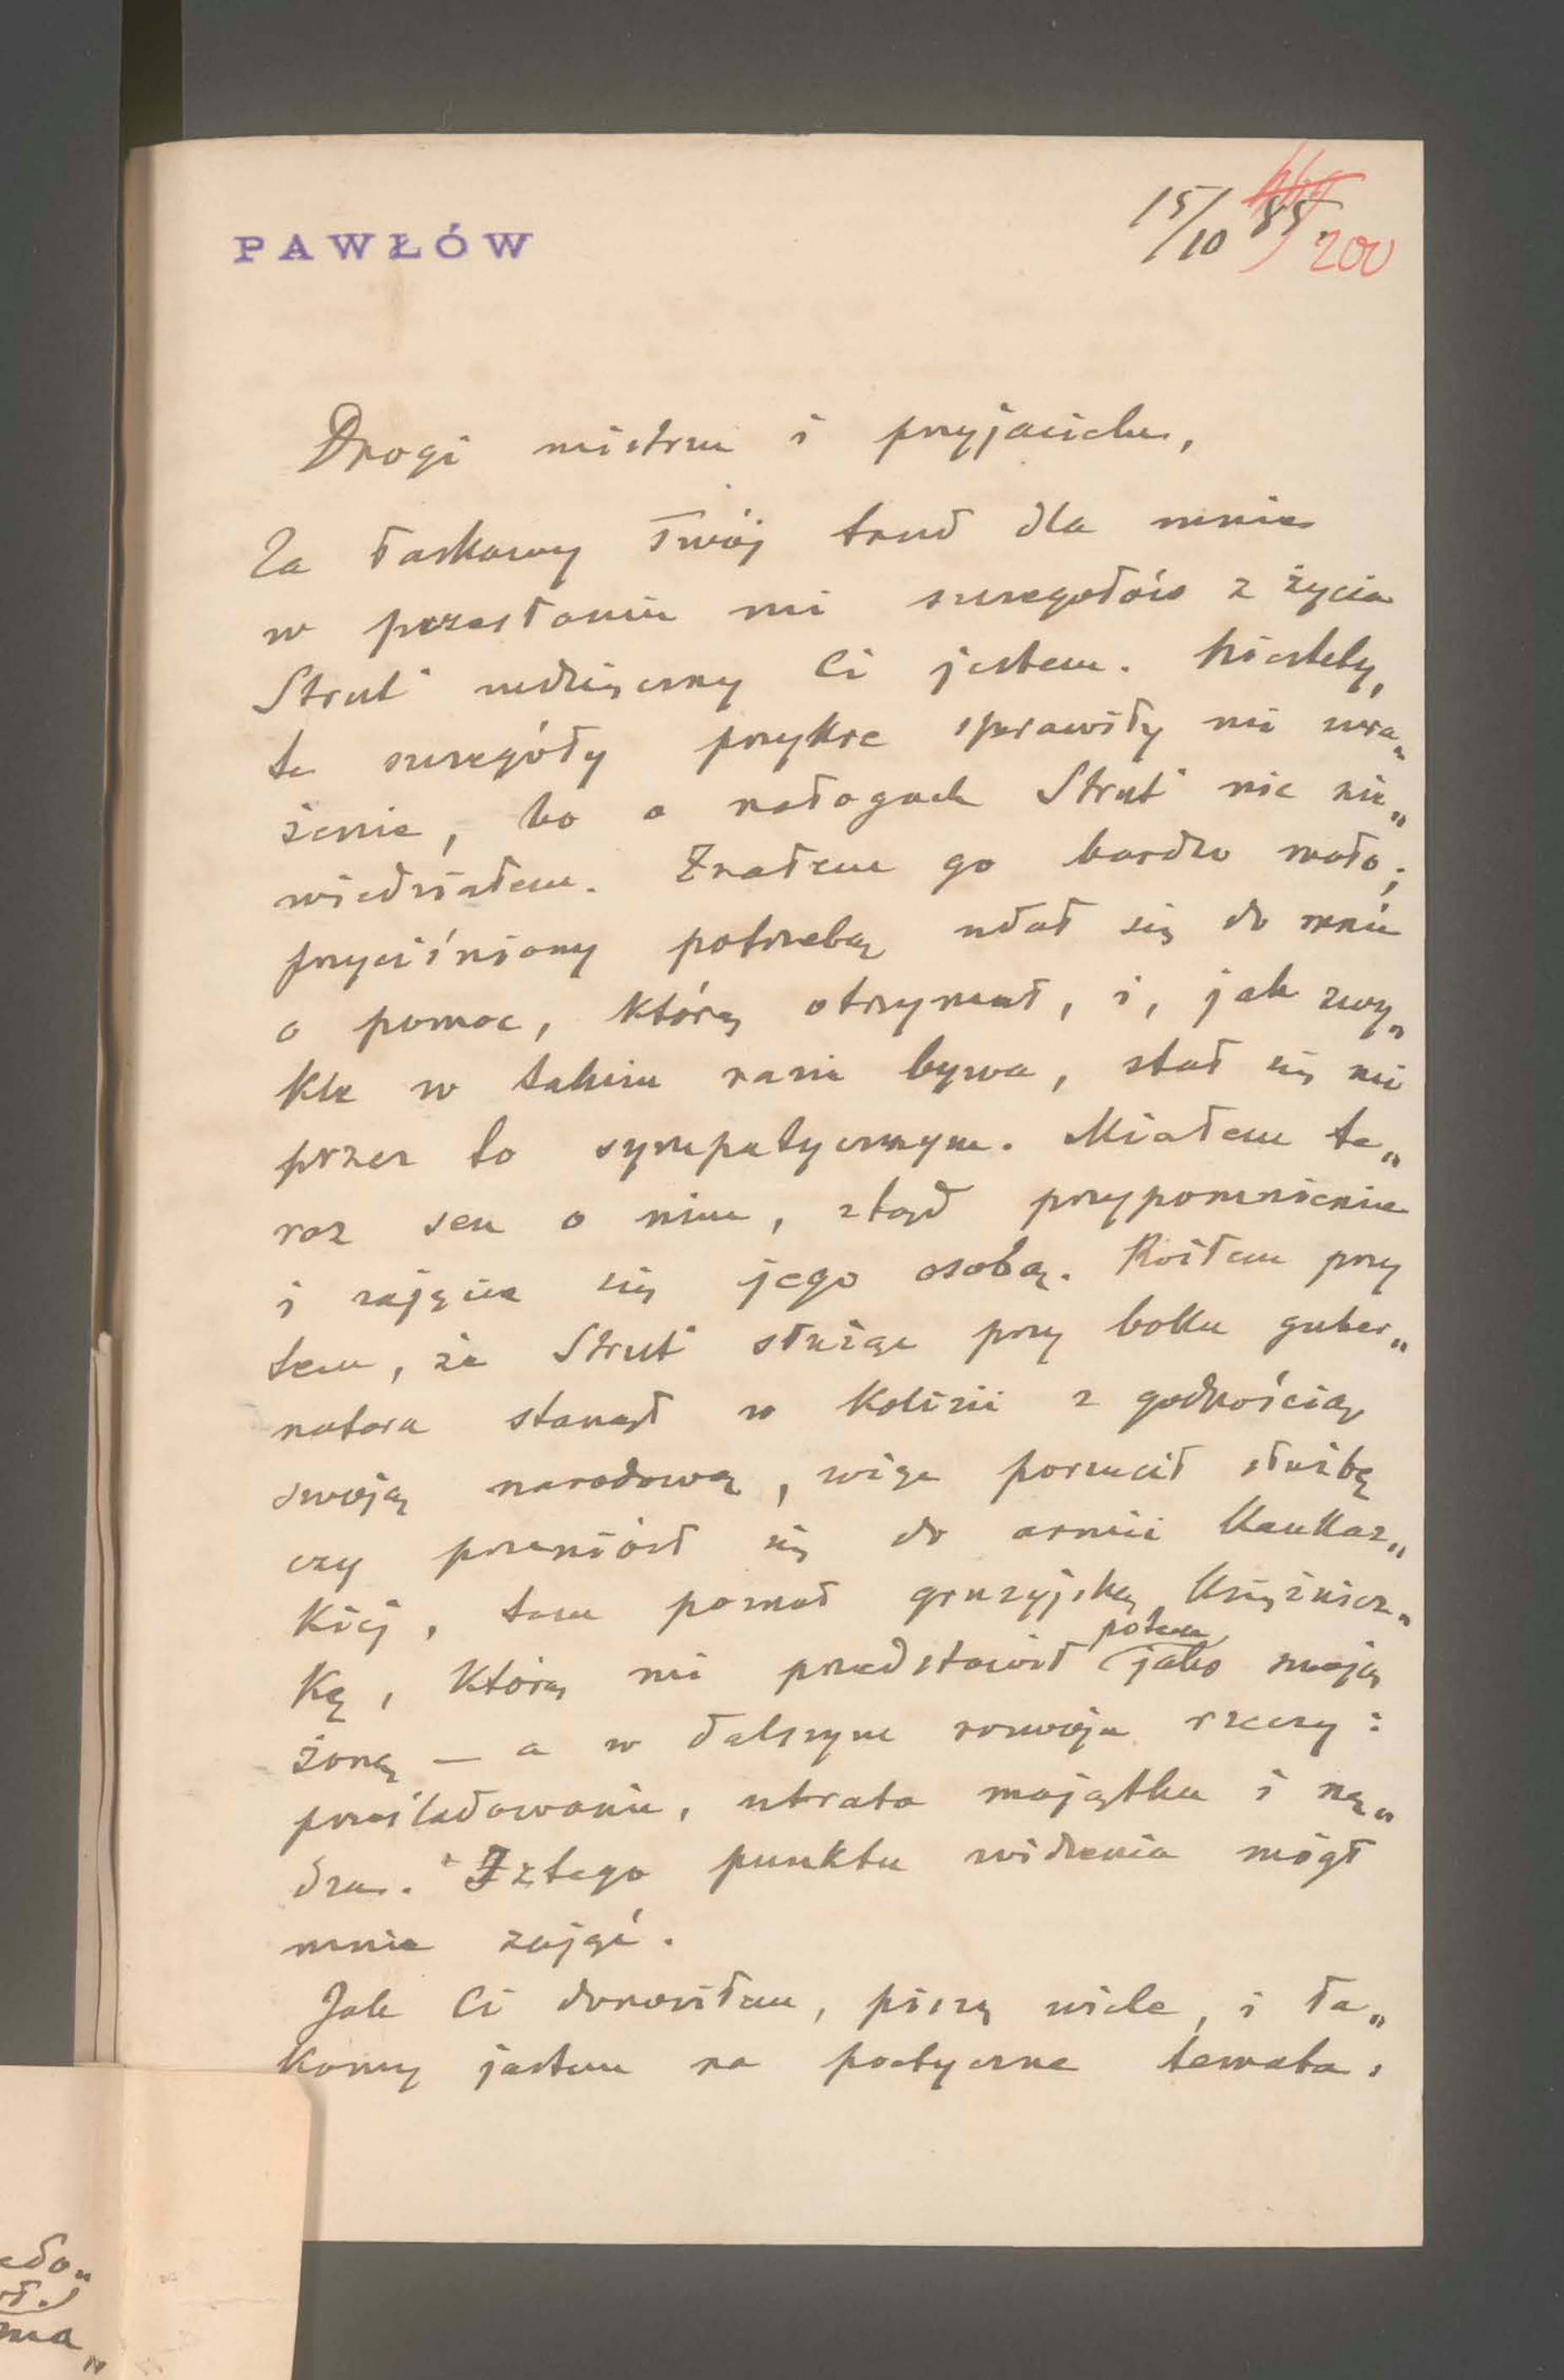 PAWŁÓW
15/10 85.
200
Drogi mistrzu i przyjacielu,
Za łaskawy Twój trud dla mnie
w przesłaniu mi szczegółów z życia
Strut' wdzięczny Ci jestem. Niestety,
te szczegóły przykre sprawiły mi wra„
żenie, bo o nałogach Strut' nic nie„
wiedziałem. Znałem go bardzo mało;
przyciśniony potrzebą udał się do mnie
o pomoc, którą otrzymał, i, jak zwy„
kle w takim razie bywa, stał się mi
przez to sympatycznym. Miałem te„
raz sen o nim, ztąd przypomnienie
i zajęcie się jego osobą. Roiłem przy
tem, że Strut' służąc przy boku guber„
natora stanął w kolizii z godnością
swoją narodową, więc porzucił służbę
czy przeniósł się do armii Kaukaz„
kiej, tam poznał gruzyjską księżnicz„
kę, którą mi przedstawił potem jako swoją
żonę — a w dalszym rozwoju rzeczy:
prześladowanie, utrata majątku i nę„
dza. Z tego punktu widzenia mógł
mnie zająć.
Jak Ci donosiłem, piszę wiele, i ła„
komy jestem na poetyczne temata,
edo„
ł.)
ma„